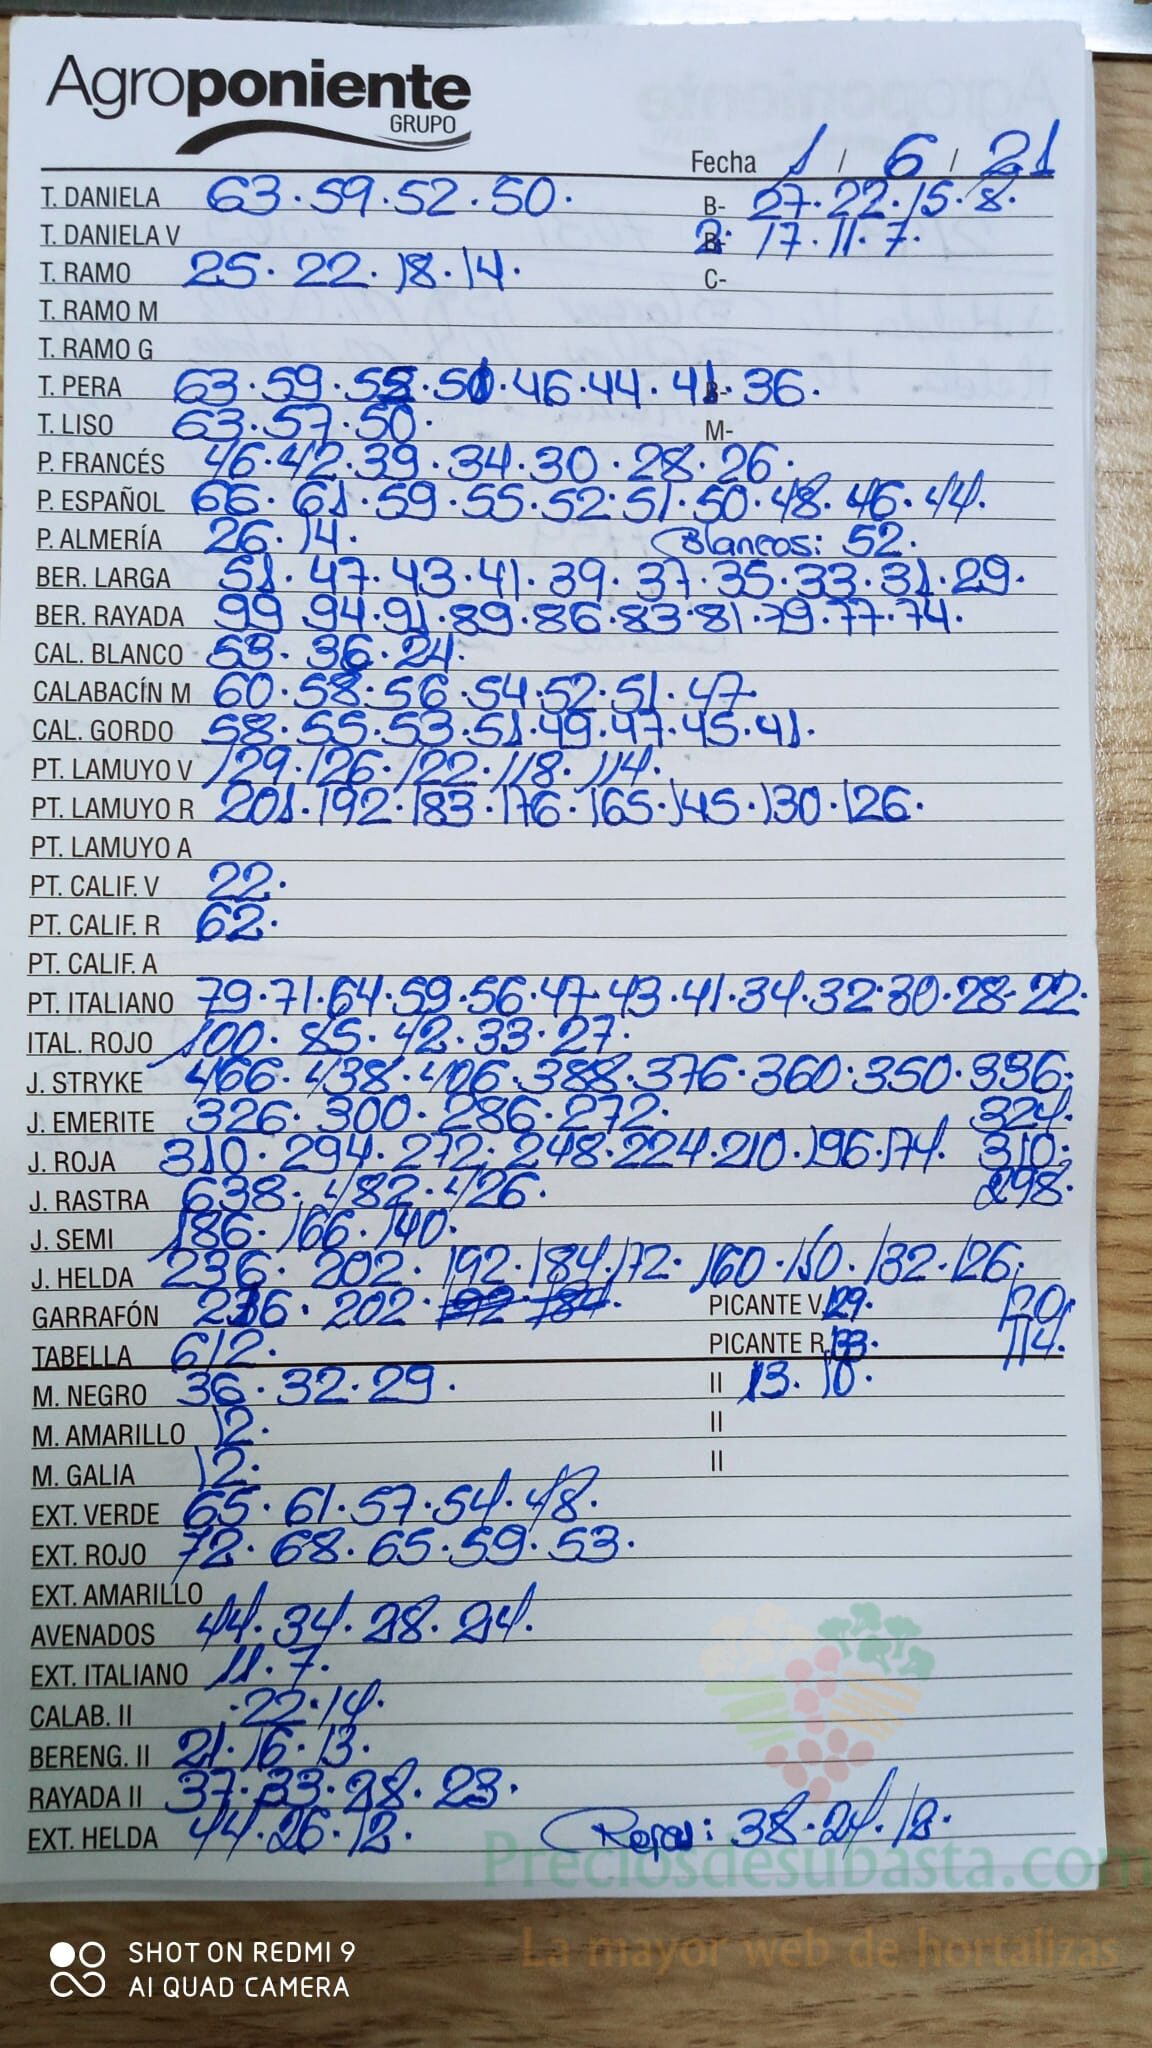 Agroponiente
GRUPO
Fecha 1 / 6 / 21
T. DANIELA 63.59.52.50. B- 27.22.15.8.
T. DANIELA V 2: 17.11.7.
T. RAMO 25.22.18.14. C-
T. RAMO M
T. RAMO G
T. PERA 63.59.55.50.46.44.41.36.
T. LISO 63.57.50. M-
P. FRANCÉS 46.42.39.34.30.28.26.
P. ESPAÑOL 66.61.59.55.52.51.50.48.46.44.
P. ALMERÍA 26.14. Blancos: 52.
BER. LARGA 51.47.43.41.39.37.35.33.31.29.
BER. RAYADA 99.94.91.89.86.83.81.79.77.74.
CAL. BLANCO 53.36.24.
CALABACÍN M 60.58.56.54.52.51.47.
CAL. GORDO 58.55.53.51.49.47.45.41.
PT. LAMUYO V 129.126.122.118.114.
PT. LAMUYO R 201.192.183.176.165.145.130.126.
PT. LAMUYO A
PT. CALIF. V 22.
PT. CALIF. R 62.
PT. CALIF. A
PT. ITALIANO 79.71.64.59.56.47.43.41.34.32.30.28.22.
ITAL. ROJO 100.85.42.33.27.
J. STRYKE 466.438.406.388.376.360.350.336.
J. EMERITE 326.300.286.272. 324.
J. ROJA 310.294.272.248.224.210.196.174. 310.
J. RASTRA 638.482.426. 298.
J. SEMI 186.166.140.
J. HELDA 236.202.192.184.172.160.150.132.126.
GARRAFÓN 202. 192. 184. PICANTE V. 129. 120.
TABELLA 612. PICANTE R. 133. 114.
M. NEGRO 36.32.29. II 13.10.
M. AMARILLO 12. II
M. GALIA 12. II
EXT. VERDE 65.61.57.54.48.
EXT. ROJO 72.68.65.59.53.
EXT. AMARILLO
AVENADOS 44.34.28.24.
EXT. ITALIANO 11.7.
CALAB. II .22.14.
BERENG. II 21.16.13.
RAYADA II 37.33.28.23.
EXT. HELDA 44.26.12. : 38.24.18.
Preciosdesubasta.com
La mayor web de hortalizas
SHOT ON REDMI 9
AI QUAD CAMERA